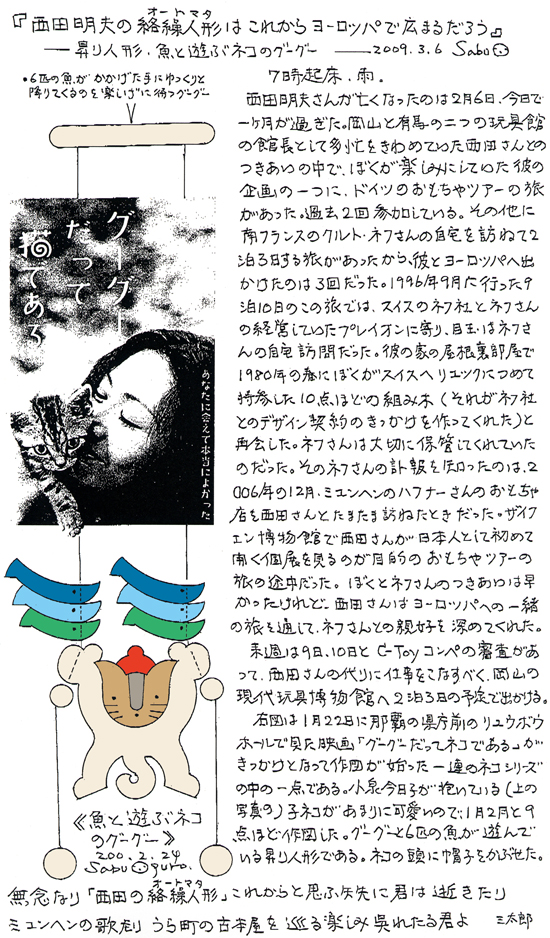 『西田明夫の絡繰人形はこれからヨーロッパで広まるだろう』
オートマタ
―昇り人形・魚と遊ぶネコのグーグー ――2009.3.6 Sabu
•6匹の魚がかかげた手にゆっくりと
降りてくるのを楽しげに待つグーグー
グーグー
だって
猫である
あなたに会えて本当によかった
《魚と遊ぶネコ
のグーグー》
200.2.24
Sabu guro.
7時起床、雨。
西田明夫さんが亡くなったのは2月6日、今日で
一ヶ月が過ぎた。岡山と有馬の二つの玩具館
の館長として多忙をきわめていた西田さんとの
つきあいの中で、ぼくが楽しみにしていた彼の
企画の一つに、ドイツのおもちゃツアーの旅
があった。過去2回参加している。その他に
南フランスのクルト・ネフさんの自宅を訪ねて2
泊3日する旅があったから、彼とヨーロッパへ出
かけたのは3回だった。1996年9月に行った9
泊10日のこの旅では、スイスのネフ社とネフさん
の経営していたプレイオンに寄り、目玉はネフさ
んの自宅訪問だった。彼の家の屋根裏部屋で
1980年の春にぼくがスイスへリュックにつめて
持参した10点ほどの組み木(それがネフ社
とのデザイン契約のきっかけを作ってくれた)と
再会した。ネフさんは大切に保管してくれていた
のだった。そのネフさんの訃報を知ったのは、2
006年の12月、ミュンヘンのハフナーさんのおもちゃ
店を西田さんとたまたま訪ねたときだった。ザイフ
ェン博物館で西田さんが日本人として初めて
開く個展を見るのが目的のおもちゃツアーの
旅の途中だった。ぼくとネフさんのつきあいは早
かったけれど、西田さんはヨーロッパへの一緒
の旅を通して、ネフさんとの親交を深めてくれた。
来週は9日、10日とC-Toyコンペの審査があ
って、西田さんの代りに仕事をこなすべく、岡山の
現代玩具博物館へ2泊3日の予定で出かける。
右図は1月22日に那覇の県庁前のリュウボウ
ホールで見た映画「グーグーだってネコである」が
きっかけとなって作図が始った一連のネコシリーズ
の中の一点である。小泉今日子が抱いている(上の
写真の)子ネコがあまりに可愛いので、1月2月と9
点ほど作図した。グーグーと6匹の魚が遊んで
いる昇り人形である。ネコの頭に帽子をかぶせた。
オートマタ
無念なり「西田の絡繰人形」これからと思ふ矢先に君は逝きたり
ミュンヘンの歌だり うら町の古本屋を巡る楽しみ呉れたる君よ 三太郎